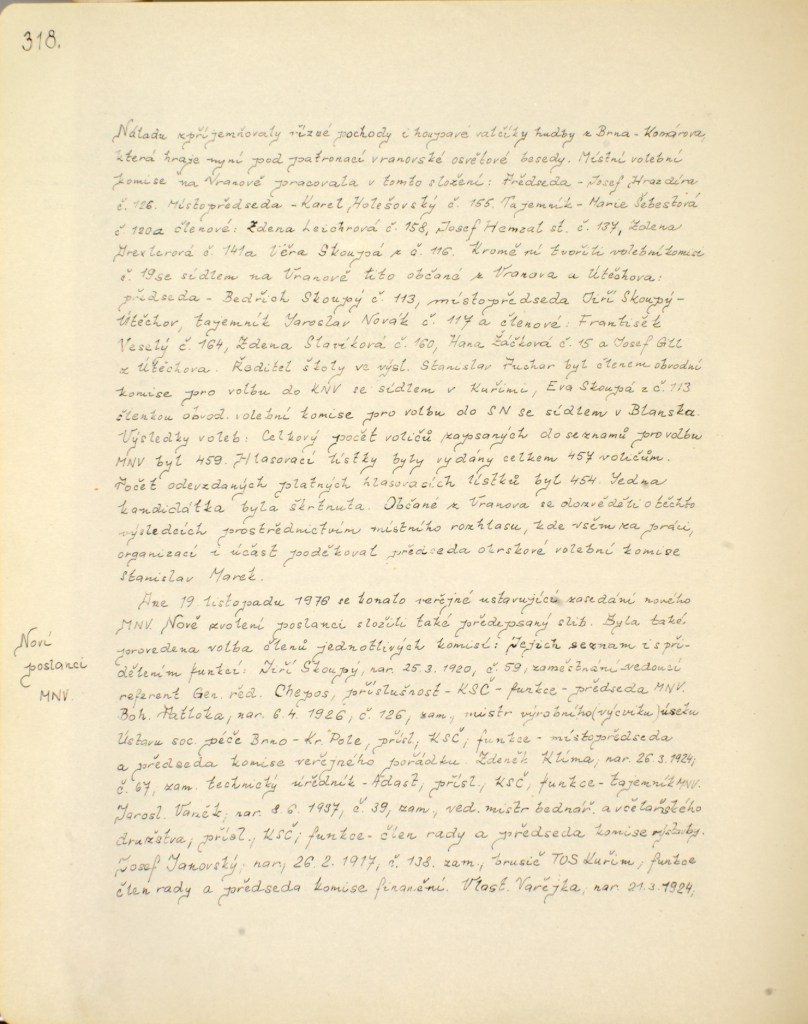 318.
Náladu zpříjemňovaly různé pochody i houpavé valčíky hudby z Brna - Komárova,
která hraje nyní pod patronací vranovské osvětové besedy. Místní volební
komise na Vranově pracovala v tomto složení: Předseda - Josef Hrazdíra
č. 126. Místopředseda - Karel Holešovský č. 155. Tajemník - Marie Šebestová
č 120a členové: Zdena Leichrová č. 158, Josef Hemzal st. č. 137, Zdena
Drexlerová č. 141a Věra Skoupá z č. 116. Kromě ní tvořili volební komisi
č. 19 se sídlem na Vranově tito občané z Vranova a Útěchova:
předseda - Bedřich Skoupý č. 113, místopředseda Jiří Skoupý-
Útěchov, tajemník Jaroslav Novák č. 117 a členové: František
Veselý č. 164, Zdena Slavíková č. 160, Hana Žáčková č. 15 a Josef Oll
z Útěchova. Ředitel školy ve výsl. Stanislav Puchar byl členem obvodní
komise pro volbu do KNV se sídlem v Kuřimi, Eva Skoupá z č. 113
členkou obvod. volební komise pro volbu do SN se sídlem v Blansku.
Výsledky voleb: Celkový počet voličů zapsaných do seznamů pro volbu
MNV byl 459. Hlasovací lístky byly vydány celkem 457 voličům.
Počet odevzdaných platných hlasovacích lístků byl 454. Jedna
kandidátka byla škrtnuta. Občané z Vranova se dozvěděli o těchto
výsledcích prostřednictvím místního rozhlasu, kde všem za práci,
organizaci i účast poděkoval předseda okrskové volební komise
Stanislav Marek.
Dne 19. listopadu 1976 se konalo veřejné ustavující zasedání nového
MNV. Nově zvolení poslanci složili také předepsaný slib. Byla také
Noví
poslanci
MNV.
provedena volba členů jednotlivých komisí: Jejich seznam i s při-
dělením funkcí: Jiří Skoupý, nar. 25.3. 1920, č. 59, zaměstnání - vedoucí
referent Gen. řed. Chepos, příslušnost - KSČ - funkce - předseda MNV.
Boh. Patloka, nar. 6.4. 1926, č. 126, zam., mistr výrobního (výcviku) úseku
Ústavu soc. péče Brno - Kr. Pole, přísl. KSČ, funkce - místopředseda
a předseda komise veřejného pořádku. Zdeněk Klíma, nar. 26.3. 1924,
č. 67, zam. technický úředník - Adast, přísl., KSČ, funkce - tajemník MNV.
Jarosl. Vaněk, nar. 8.6. 1937, č. 39, zam., ved. mistr bednář. a včelařského
družstva, přísl., KSČ, funkce - člen rady a předseda komise výstavby.
Josef Janovský, nar., 26.2. 1917, č. 138. zam., brusič TOS Kuřim, funkce
člen rady a předseda komise finanční. Vlast. Vařejka, nar. 21.3. 1924,